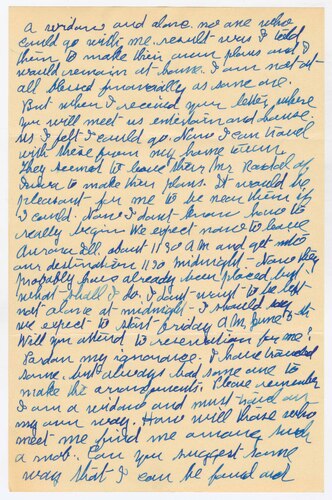 a widow and alone. no one who
could go with me. result - was I told
them to make their own plans and I
would remain at home. I am not at
all blessed financially as some are.
But when I received your letter, where
you will meet us entertain and house
us I felt I could go. Now I can travel
with these from my home town.
They seemed to leave their Mr of
to make their plans. It would be
pleasant for me to be near them if
I could. Now I dont know how to
really begin We expect now to leave
Aurora Ill. about 11 30 A M and get into
our destination 11 30 midnight - Now they
probably have already been placed but
what shall I do. I dont want to be left
not alone at midnight - I should say
we expect to start Friday A.M. June
Will you attend to reservation for me?
Pardon my ignorance. I have traveled
some. but always had some one to
make the arrangements. Please remember
I am a widow and must
my own way. How will those who
meet me find me among such
a mob. Can you suggest some
way that I can be found and